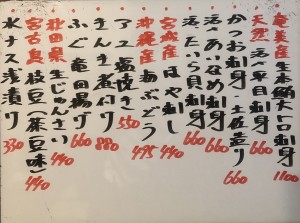 奄美産 生本鮪大トロ刺身 1100
天然 活〆平目刺身 660
かつお刺身 土佐造り 660
活〆あいなめ刺身 660
活たいら貝刺身 660
宮城産 ほや刺し 440
沖縄産 海ぶどう 495
アユ塩焼き 550
きんき煮付け 880
ふぐ竜田揚げ 660
秋田県 生じゅんさい 440
宮古島 枝豆(茶豆味) 440
水ナス浅漬り 330